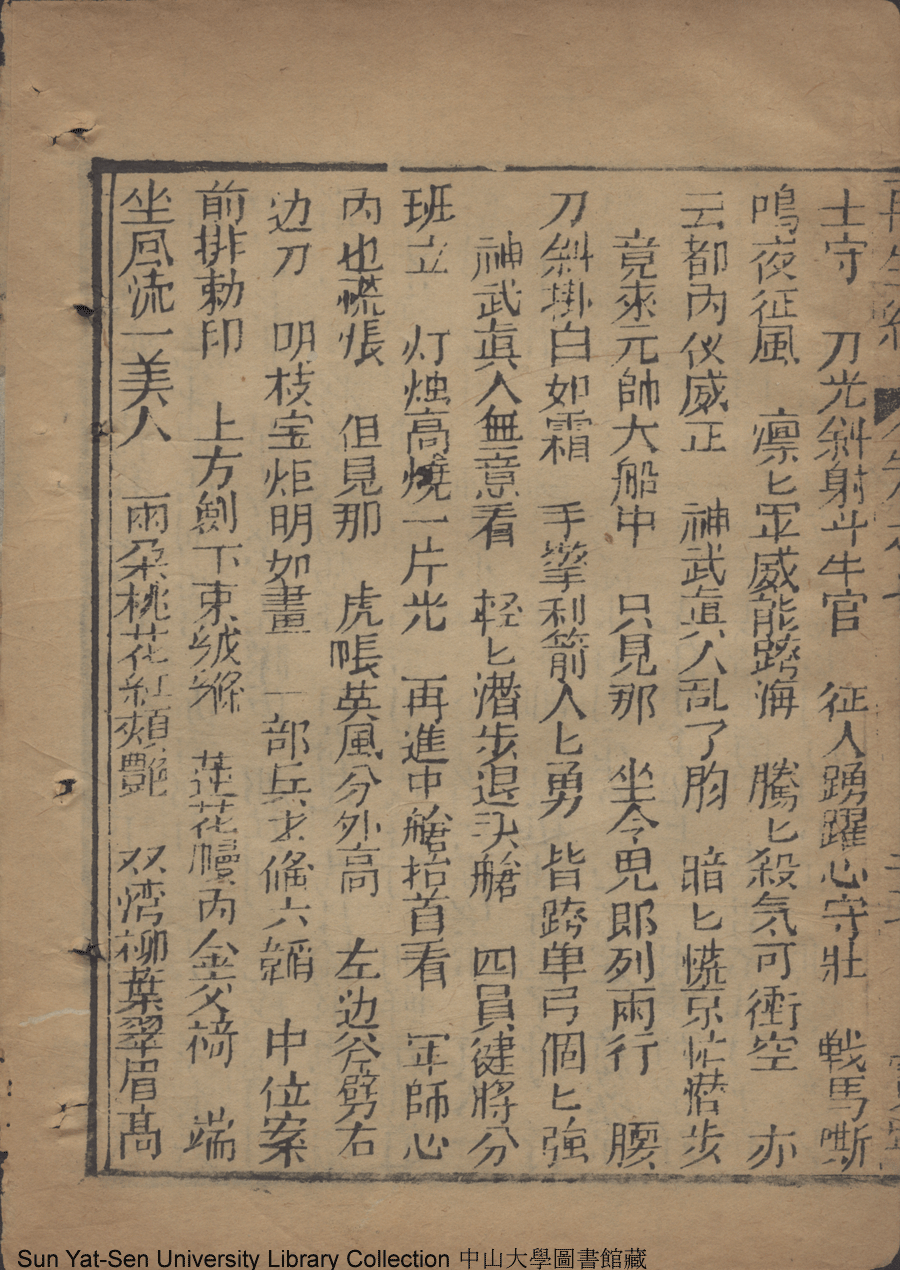 再生緣
士守　刀光斜射斗牛官　征人踴躍心守壯　戦馬嘶
鳴夜征風　凛匕军威能跨海　騰匕殺気可衝空　亦
云都内仪威正　神武眞人乱了胸　暗匕慌京忙潜步
竟來元帥大船中　只見那　坐令児郎列兩行　腰
刀斜掛白如霜　手擎利箭人匕勇　皆跨单弓個匕強
神武眞人無意看　軽匕潜步退头艙　四員健將分
班立　灯烛高燒一片光　再進中艙抬首看　军師心
内也慌悵　但見那　虎帳英風分外高　左边斧劈右
边刀　明枝宝炬明如畫　一部兵才俻六韜　中位案
前排勅印　上方劍下束绒縧　莲花幔内金交椅　端
坐風流一美人　兩朵桃花紅頰艷　双湾柳葉翠眉高
Sun Yat-Sen University Library Collection 中山大學圖書館藏